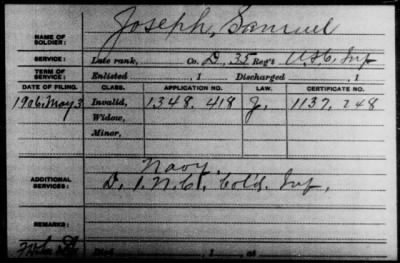 NAME OF SOLDIER: Joseph, Samuel
SERVICE: Late rank, Co. D, 35 Reg't U.S.C. Inf
TERM OF SERVICE: Enlisted , 1 Discharged , 1
DATE OF FILING. CLASS. APPLICATION NO. LAW. CERTIFICATE NO.
1906, May 3 Invalid, 1348.418 J. 1137.248
Widow,
Minor,
Navy.
ADDITIONAL SERVICES: D. 1. N.C. Col'd. Inf.
REMARKS:
Died , 1 , at